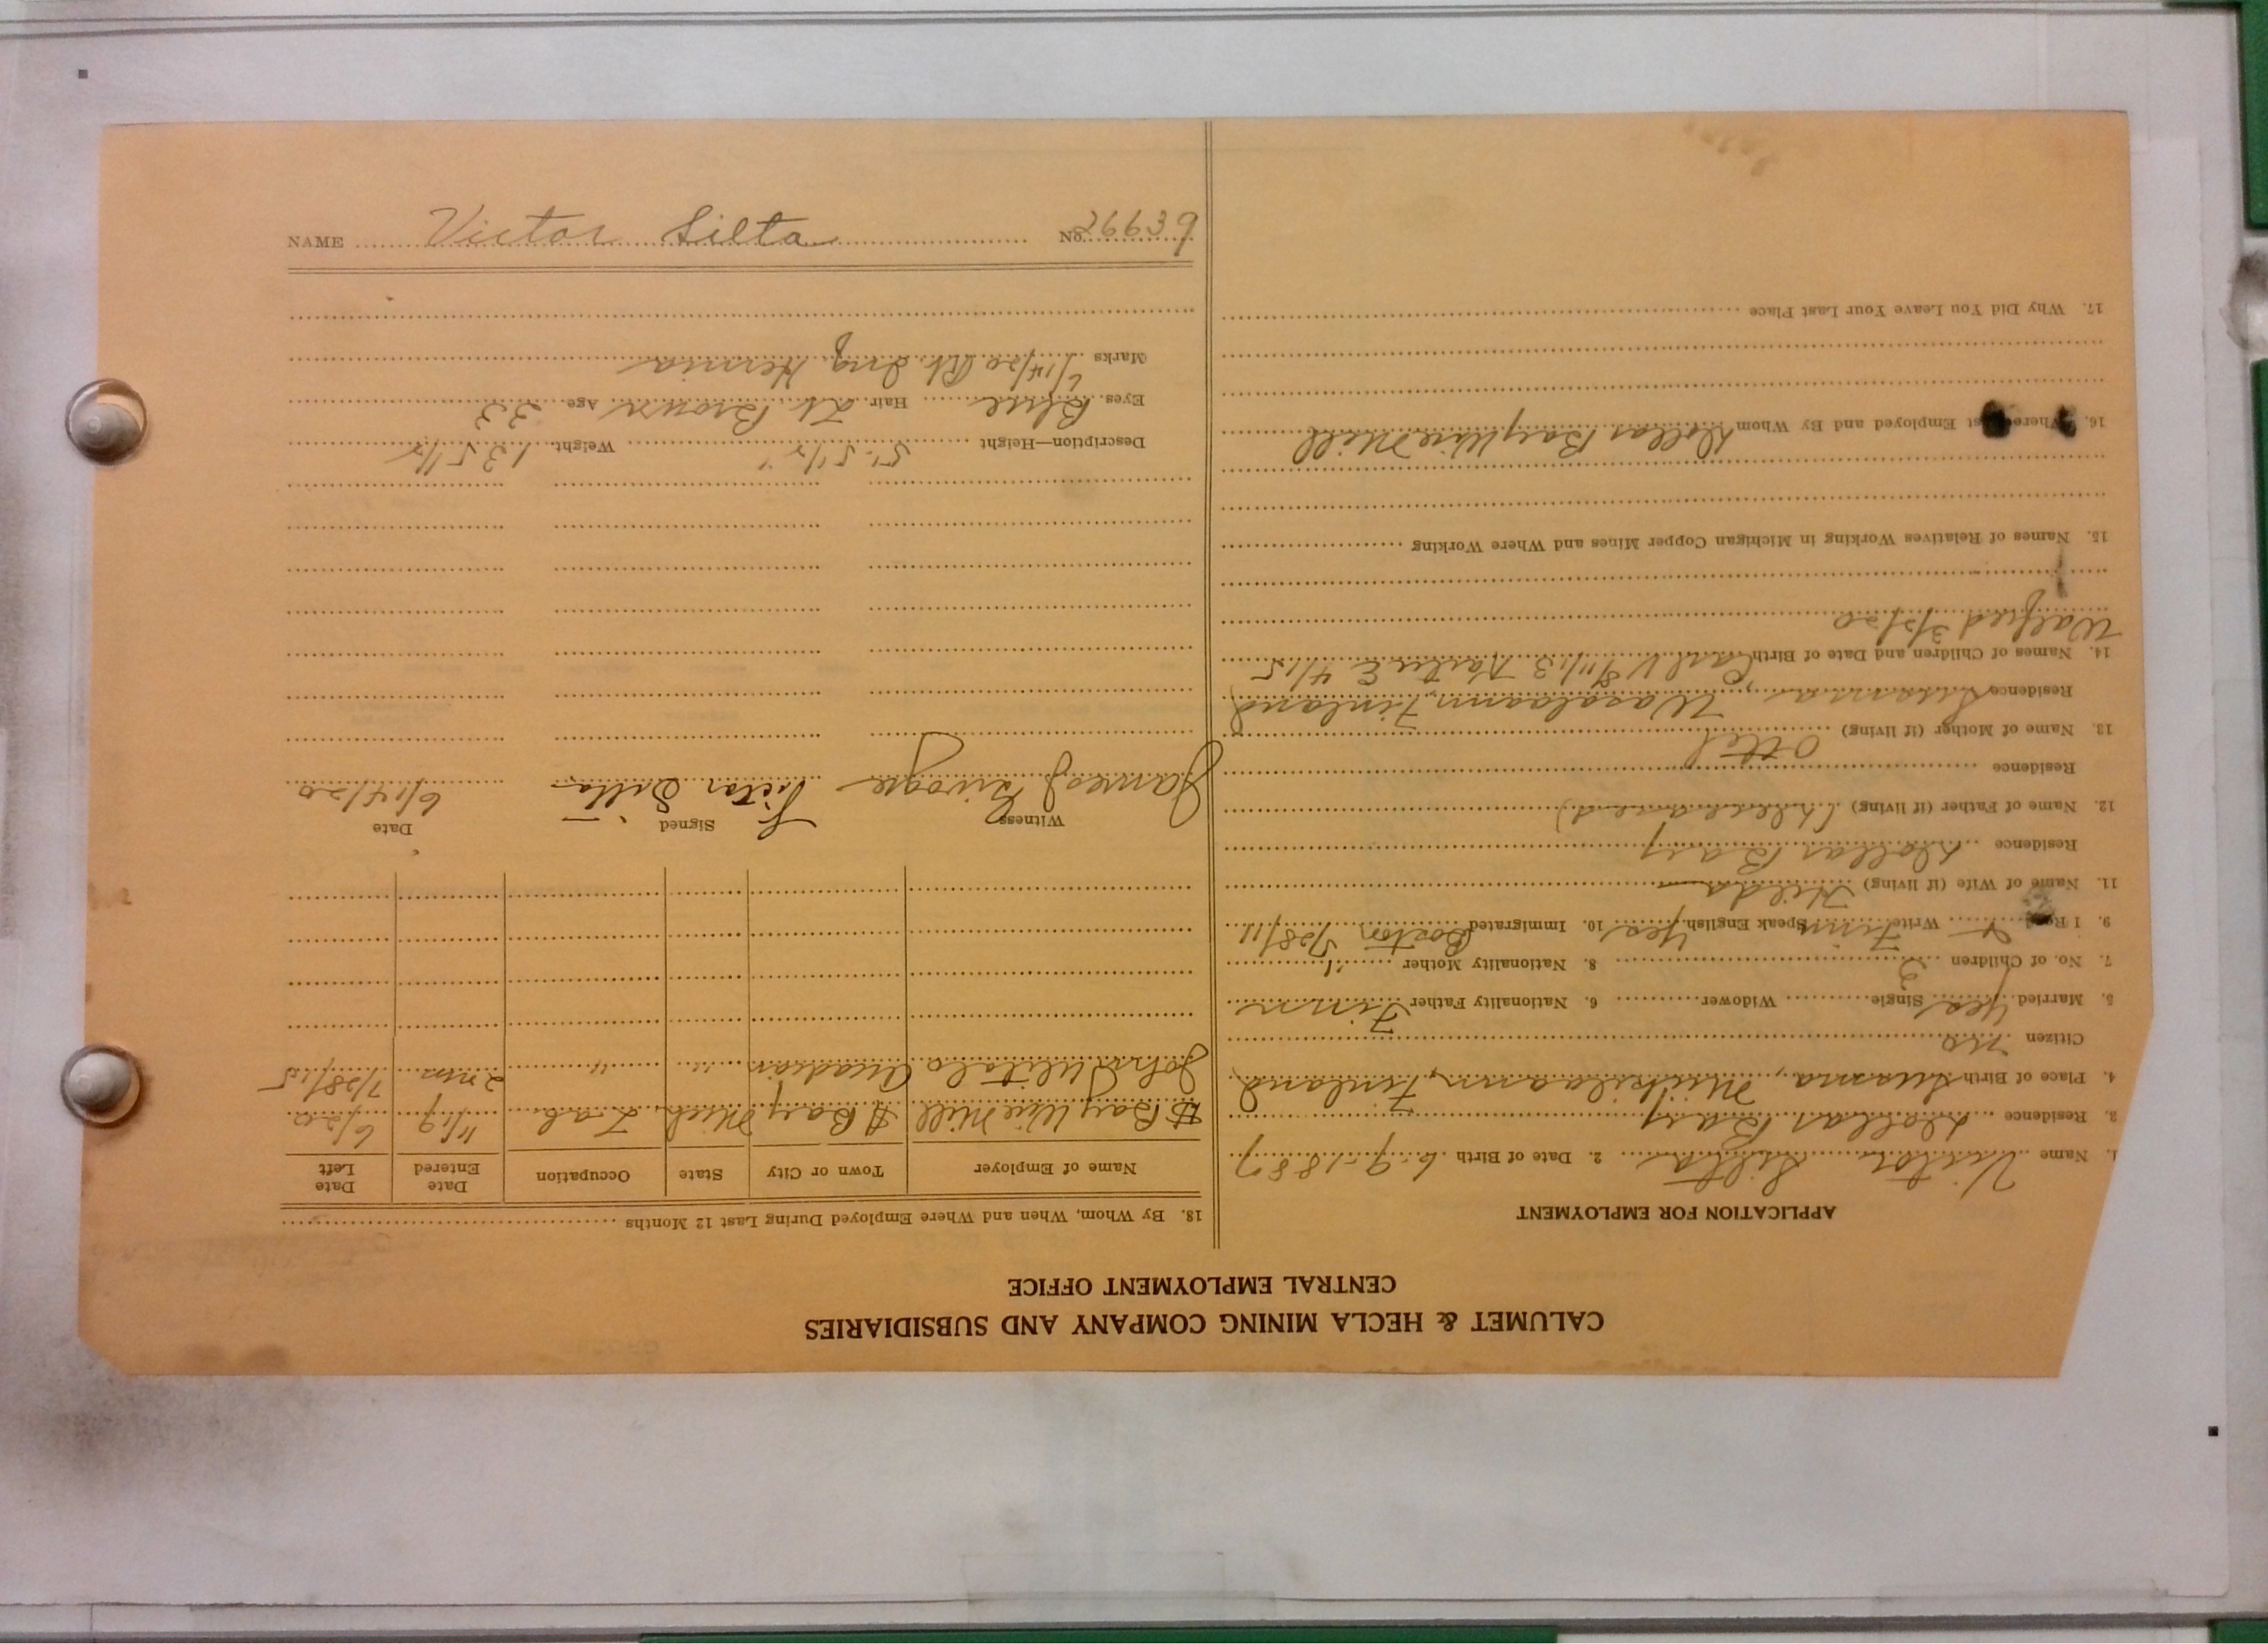 CALUMET & HECLA MINING COMPANY AND SUBSIDIARIES
CENTRAL EMPLOYMENT OFFICE
APPLICATION FOR EMPLOYMENT
1. Name Victor Silta 2. Date of Birth 6-9-1887
3. Residence Dollar Bay
4. Place of Birth Suoma, Finland
Citizen no
5. Married yes Single Widower 6. Nationality Father Finn
7. No. of Children 3 8. Nationality Mother "
9. I Read Write Finn Speak English yes 10. Immigrated Boston 5/28/11
11. Name of Wife (if living) Hilda
Residence Dollar Bay
12. Name of Father (if living) (deceased)
Residence
13. Name of Mother (if living)
Residence Suoma Finland
14. Names of Children and Date of Birth Carl V 4/15
Walfred 3/2/20
15. Names of Relatives Working in Michigan Copper Mines and Where Working
16. Where Employed and By Whom Dollar Bay Wire Mill
17. Why Did You Leave Your Last Place
18. By Whom, When and Where Employed During Last 12 Months
Name of Employer Town or City State Occupation Date Entered Date Left
$ Bay Wire Mill $ Bay Mich Lab. 11/19 6/20
John " " 2 mo 7/28/15
Witness Signed Date
James Victor Silta 6/14/20
Description—Height 5'. 5 1/2" Weight 135 1/2
Eyes Blue Hair Lt Brown Age 33
Marks 6/14/20 Rt. Ing Hernia
NAME Victor Silta No. 26639